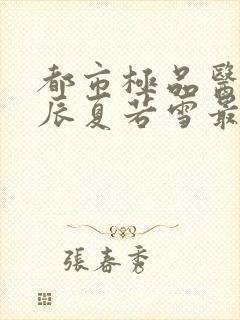 都市極品醫
辰夏若雪最
張春秀